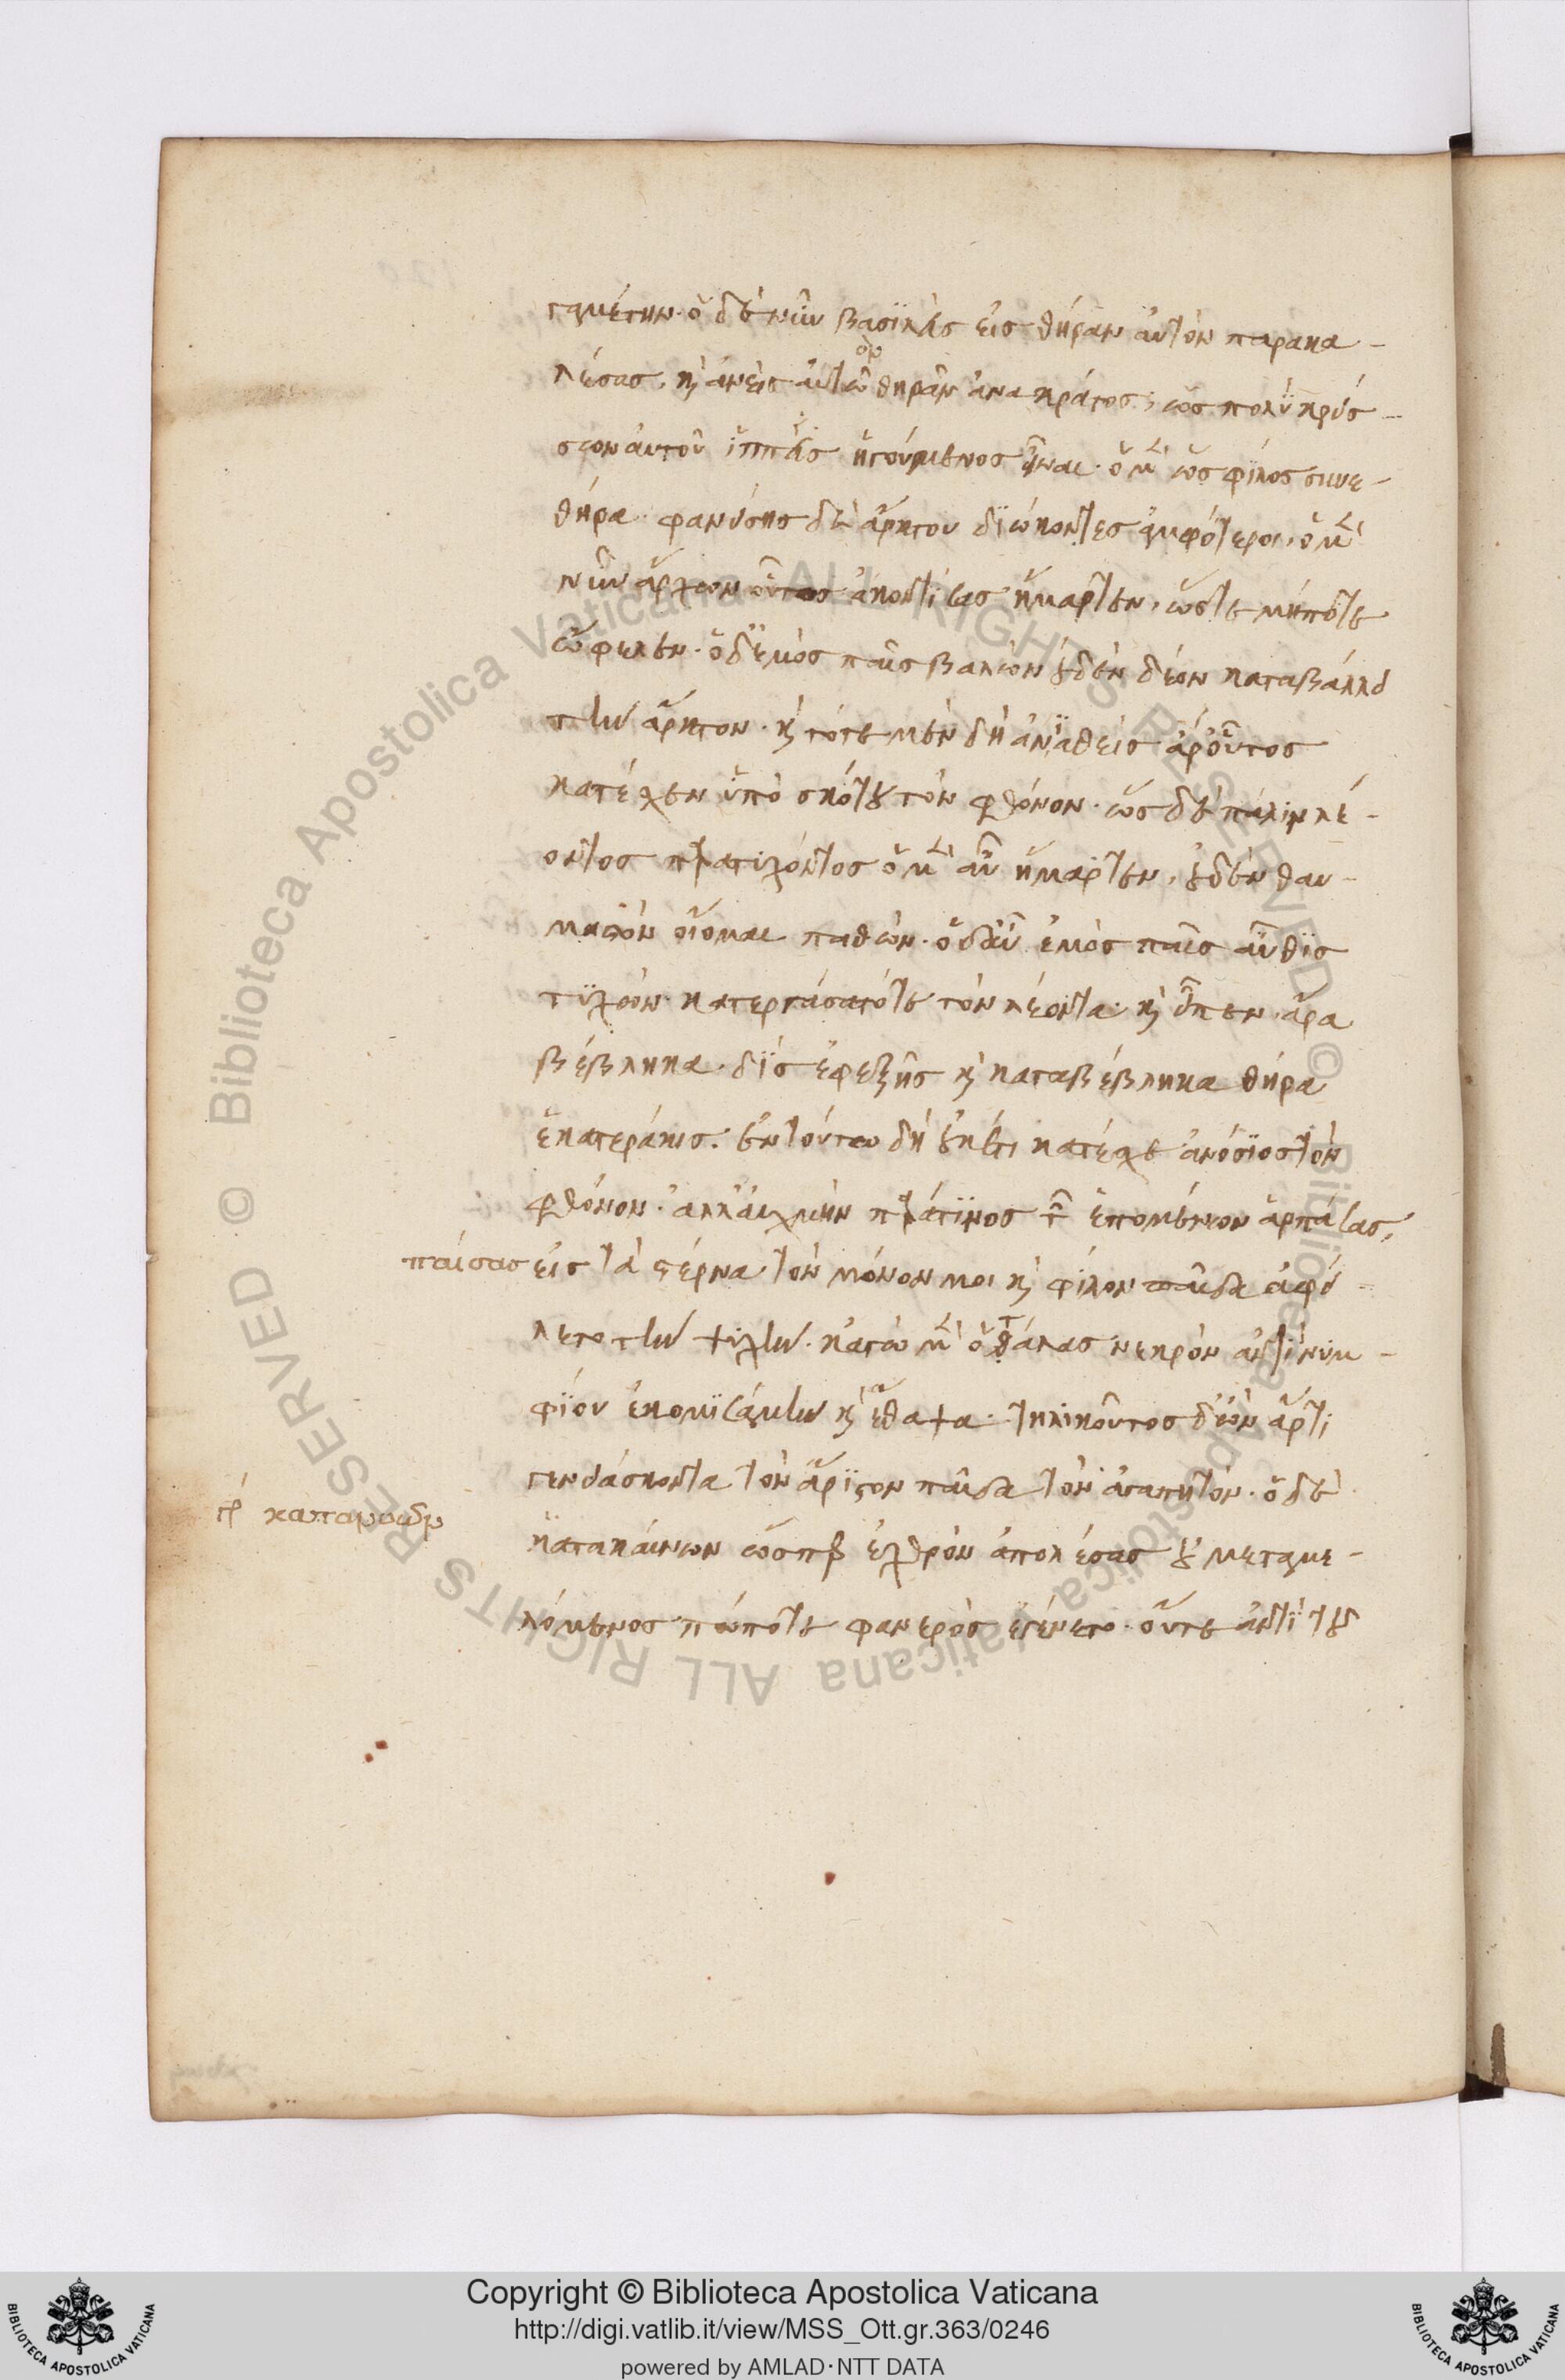 γαμέτην· ὁ δὲ νῦν βασιλεὺς εἰς θήραν αὐτὸν παρακα-
λέσας, καὶ ἀνεὶς αὐτῷ θηρᾶν ἀνακράτος, ὡς πολὺ κρείσ-
σων αὐτοῦ ἱππεὺς ἡγούμενος εἶναι· ὁ μὲν ὡς φίλος συνε-
θήρα· φανείσης δὲ ἄρκτου διώκοντες ἀμφότεροι, ὁ μὲν
νῦν ἄρχων οὗτος ἀκοντίσας ἥμαρτεν, ὥστε μήποτε
ὤφελεν· ὁ δ' ἐμὸς παῖς βαλὼν οὐδὲν δέον καταβάλλει
τὴν ἄρκτον· καὶ τότε μὲν δὴ ἀνιαθεὶς ἄρ' οὗτος
κατέσχεν ὑπὸ σκότου τὸν φθόνον· ὡς δὲ πάλιν λέ-
οντος παρατυχόντος ὁ μὲν αὖ ἥμαρτεν, οὐδὲν θαυ-
μαστὸν οἴομαι παθών· ὁ δ' αὖ ἐμὸς παῖς αὖθις
τυχὼν κατειργάσατό τε τὸν λέοντα καὶ εἶπεν, ἆρα
βέβληκα δὶς ἐφεξῆς καὶ καταβέβληκα θῆρα
ἑκατεράκις. ἐν τούτῳ δὴ οὐκέτι κατέσχε ἀνόσιος τὸν
φθόνον· ἀλλ' αἰχμὴν παρά τινος τῶν ἑπομένων ἁρπάσας,
παίσας εἰς τὰ στέρνα τὸν μόνον μοι καὶ φίλον παῖδα ἀφεί-
λετο τὴν ψυχήν. κἀγὼ μὲν ὁ τάλας νεκρὸν ἀντὶ νυμ-
φίου ἐκομισάμην καὶ ἔθαψα τηλικοῦτος ὢν ἄρτι
γενειάσκοντα τὸν ἄριστον παῖδα τὸν ἀγαπητόν· ὁ δὲ
κατακαίνων ὥσπερ ἐχθρὸν ἀπολέσας οὔ μεταμε-
λόμενος πώποτε φανερὸς ἐγένετο· οὔτε ἀντὶ τοῦ
Copyright © Biblioteca Apostolica Vaticana
http://digi.vatlib.it/view/MSS_Ott.gr.363/0246
powered by AMLAD·NTT DATA